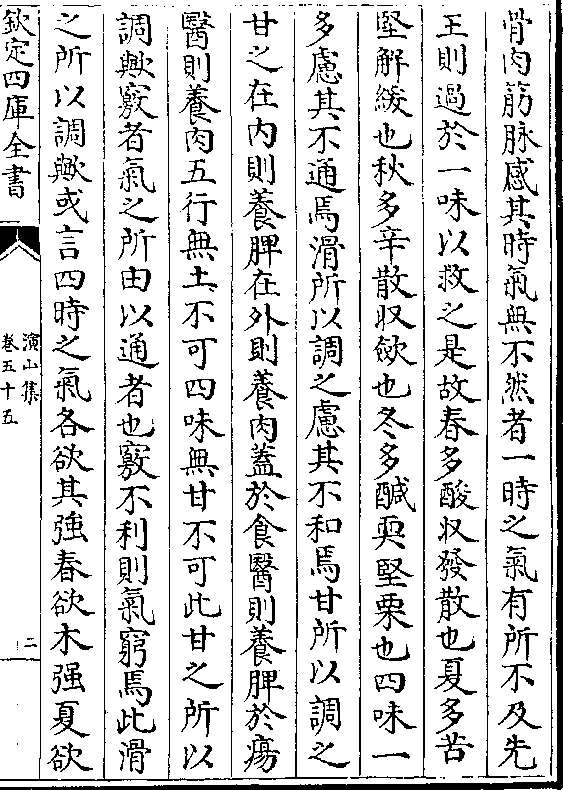 骨肉筋脉感其時氣無不然者一時之氣有所不及先
王則過於一味以救之是故春多酸收發散也夏多苦
堅解緩也秋多辛散收斂也冬多醎耎堅栗也四味一
多慮其不通焉滑所以調之慮其不和焉甘所以調之
甘之在内則養脾在外則養肉蓋於食醫則養脾於瘍
醫則養肉五行無土不可四味無甘不可此甘之所以
調歟竅者氣之所由以通者也竅不利則氣窮焉此滑
之所以調歟或言四時之氣各欲其強春欲木强夏欲
欽定四庫全書
演山集
卷五十五
二